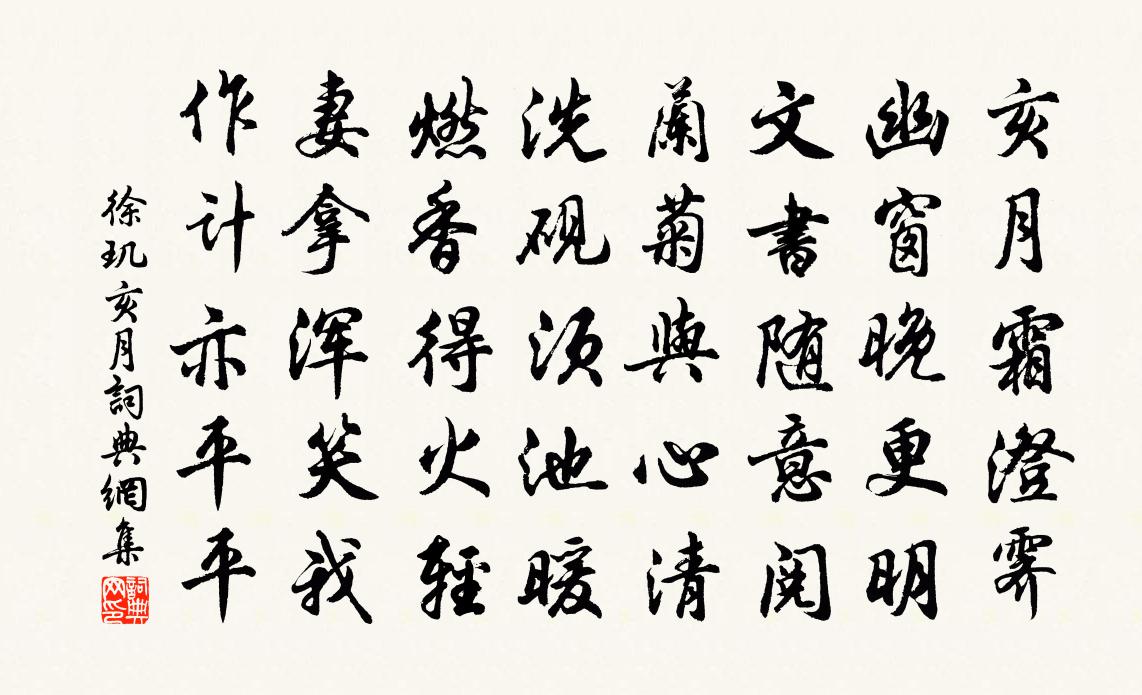 亥月霜澄霁
幽窗晚更明
文書随意閱
蘭菊與心清
洗砚须池暖
燃香得火輕
妻拿浑笑我
作计亦平平
徐玑亥月詞典網集
詞典網印